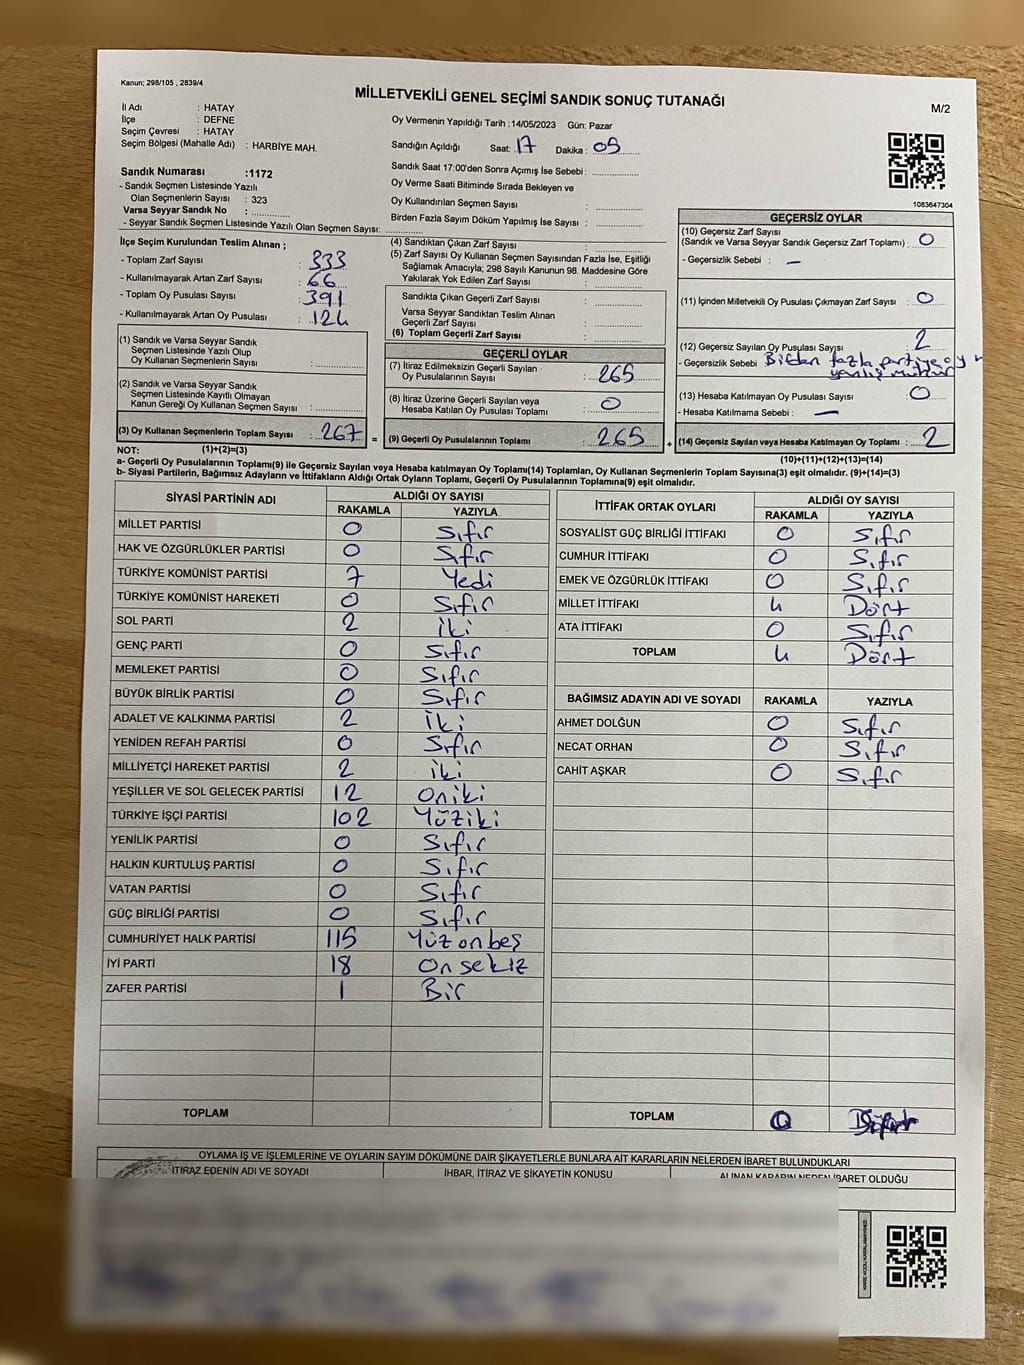 Kanun; 298/105 , 2839/4
MİLLETVEKİLİ GENEL SEÇİMİ SANDIK SONUÇ TUTANAĞI
M/2
İl Adı : HATAY
İlçe : DEFNE
Seçim Çevresi : HATAY
Seçim Bölgesi (Mahalle Adı) : HARBİYE MAH.
Oy Vermenin Yapıldığı Tarih :14/05/2023 Gün: Pazar
Sandığın Açıldığı Saat: 17 Dakika : 05
Sandık Saat 17:00'den Sonra Açımış İse Sebebi :
Oy Verme Saati Bitiminde Sırada Bekleyen ve
Oy Kullandırılan Seçmen Sayısı :
Birden Fazla Sayım Döküm Yapılmış İse Sayısı :
Sandık Numarası :1172
- Sandık Seçmen Listesinde Yazılı
Olan Seçmenlerin Sayısı : 323
Varsa Seyyar Sandık No :
- Seyyar Sandık Seçmen Listesinde Yazılı Olan Seçmen Sayısı:
1083647304
İlçe Seçim Kurulundan Teslim Alınan ;
- Toplam Zarf Sayısı : 333
- Kullanılmayarak Artan Zarf Sayısı : 66
- Toplam Oy Pusulası Sayısı : 391
- Kullanılmayarak Artan Oy Pusulası : 124
(1) Sandık ve Varsa Seyyar Sandık
Seçmen Listesinde Yazılı Olup
Oy Kullanan Seçmenlerin Sayısı :
(2) Sandık ve Varsa Seyyar Sandık
Seçmen Listesinde Kayıtlı Olmayan
Kanun Gereği Oy Kullanan Seçmen Sayısı :
(3) Oy Kullanan Seçmenlerin Toplam Sayısı : 267 =
(1)+(2)=(3)
(4) Sandıktan Çıkan Zarf Sayısı :
(5) Zarf Sayısı Oy Kullanan Seçmen Sayısından Fazla İse, Eşitliği
Sağlamak Amacıyla; 298 Sayılı Kanunun 98. Maddesine Göre
Yakılarak Yok Edilen Zarf Sayısı :
Sandıkta Çıkan Geçerli Zarf Sayısı :
Varsa Seyyar Sandıktan Teslim Alınan
Geçerli Zarf Sayısı :
(6) Toplam Geçerli Zarf Sayısı :
GEÇERLİ OYLAR
(7) İtiraz Edilmeksizin Geçerli Sayılan
Oy Pusulalarının Sayısı : 265
(8) İtiraz Üzerine Geçerli Sayılan veya
Hesaba Katılan Oy Pusulası Toplamı : 0
(9) Geçerli Oy Pusulalarının Toplamı : 265 +
GEÇERSİZ OYLAR
(10) Geçersiz Zarf Sayısı
(Sandık ve Varsa Seyyar Sandık Geçersiz Zarf Toplamı) : 0
- Geçersizlik Sebebi : –
(11) İçinden Milletvekili Oy Pusulası Çıkmayan Zarf Sayısı : 0
(12) Geçersiz Sayılan Oy Pusulası Sayısı : 2
- Geçersizlik Sebebi : Birden fazla partiye oy
(13) Hesaba Katılmayan Oy Pusulası Sayısı : 0
- Hesaba Katılmama Sebebi : –
(14) Geçersiz Sayılan veya Hesaba Katılmayan Oy Toplamı : 2
(10)+(11)+(12)+(13)=(14)
NOT:
a- Geçerli Oy Pusulalarının Toplamı(9) ile Geçersiz Sayılan veya Hesaba katılmayan Oy Toplamı(14) Toplamları, Oy Kullanan Seçmenlerin Toplam Sayısına(3) eşit olmalıdır. (9)+(14)=(3)
b- Siyasi Partilerin, Bağımsız Adayların ve İttifakların Aldığı Ortak Oyların Toplamı, Geçerli Oy Pusulalarının Toplamına(9) eşit olmalıdır.
SİYASİ PARTİNİN ADI ALDIĞI OY SAYISI
RAKAMLA YAZIYLA
MİLLET PARTİSİ 0 Sıfır
HAK VE ÖZGÜRLÜKLER PARTİSİ 0 Sıfır
TÜRKİYE KOMÜNİST PARTİSİ 7 Yedi
TÜRKİYE KOMÜNİST HAREKETİ 0 Sıfır
SOL PARTİ 2 iki
GENÇ PARTİ 0 Sıfır
MEMLEKET PARTİSİ 0 Sıfır
BÜYÜK BİRLİK PARTİSİ 0 Sıfır
ADALET VE KALKINMA PARTİSİ 2 İki
YENİDEN REFAH PARTİSİ 0 Sıfır
MİLLİYETÇİ HAREKET PARTİSİ 2 iki
YEŞİLLER VE SOL GELECEK PARTİSİ 12 Oniki
TÜRKİYE İŞÇİ PARTİSİ 102 Yüziki
YENİLİK PARTİSİ 0 Sıfır
HALKIN KURTULUŞ PARTİSİ 0 Sıfır
VATAN PARTİSİ 0 Sıfır
GÜÇ BİRLİĞİ PARTİSİ 0 Sıfır
CUMHURİYET HALK PARTİSİ 115 Yüz onbeş
İYİ PARTİ 18 On sekiz
ZAFER PARTİSİ 1 Bir
TOPLAM
İTTİFAK ORTAK OYLARI ALDIĞI OY SAYISI
RAKAMLA YAZIYLA
SOSYALİST GÜÇ BİRLİĞİ İTTİFAKI 0 Sıfır
CUMHUR İTTİFAKI 0 Sıfır
EMEK VE ÖZGÜRLÜK İTTİFAKI 0 Sıfır
MİLLET İTTİFAKI 4 Dört
ATA İTTİFAKI 0 Sıfır
TOPLAM 4 Dört
BAĞIMSIZ ADAYIN ADI VE SOYADI RAKAMLA YAZIYLA
AHMET DOLĞUN 0 Sıfır
NECAT ORHAN 0 Sıfır
CAHİT AŞKAR 0 Sıfır
TOPLAM 0
OYLAMA İŞ VE İŞLEMLERİNE VE OYLARIN SAYIM DÖKÜMÜNE DAİR ŞİKAYETLERLE BUNLARA AİT KARARLARIN NELERDEN İBARET BULUNDUKLARI
İTİRAZ EDENİN ADI VE SOYADI İHBAR, İTİRAZ VE ŞİKAYETİN KONUSU ALINAN KARARIN NEDEN İBARET OLDUĞU